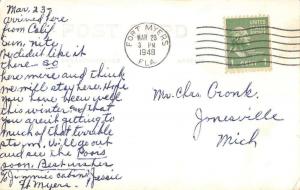 Mar. 23rd
arrived here
from Calif.
Sun. nite
we didn't like it
there - so
here more and think
we will stay here. Hope
you have been well
this winter so that
you aren't getting to
much of that terrible
storm. Will go out
and see the Poors
soon. Best wishes
Jimmie's cabins Jessie
Ft Myers.
POST CARD
FORT MYERS
MAR 23
3 PM
1948
FLA.
UNITED STATES
POSTAGE
1 CENT
Mr. Chas. Cronk,
Jonesville
Mich